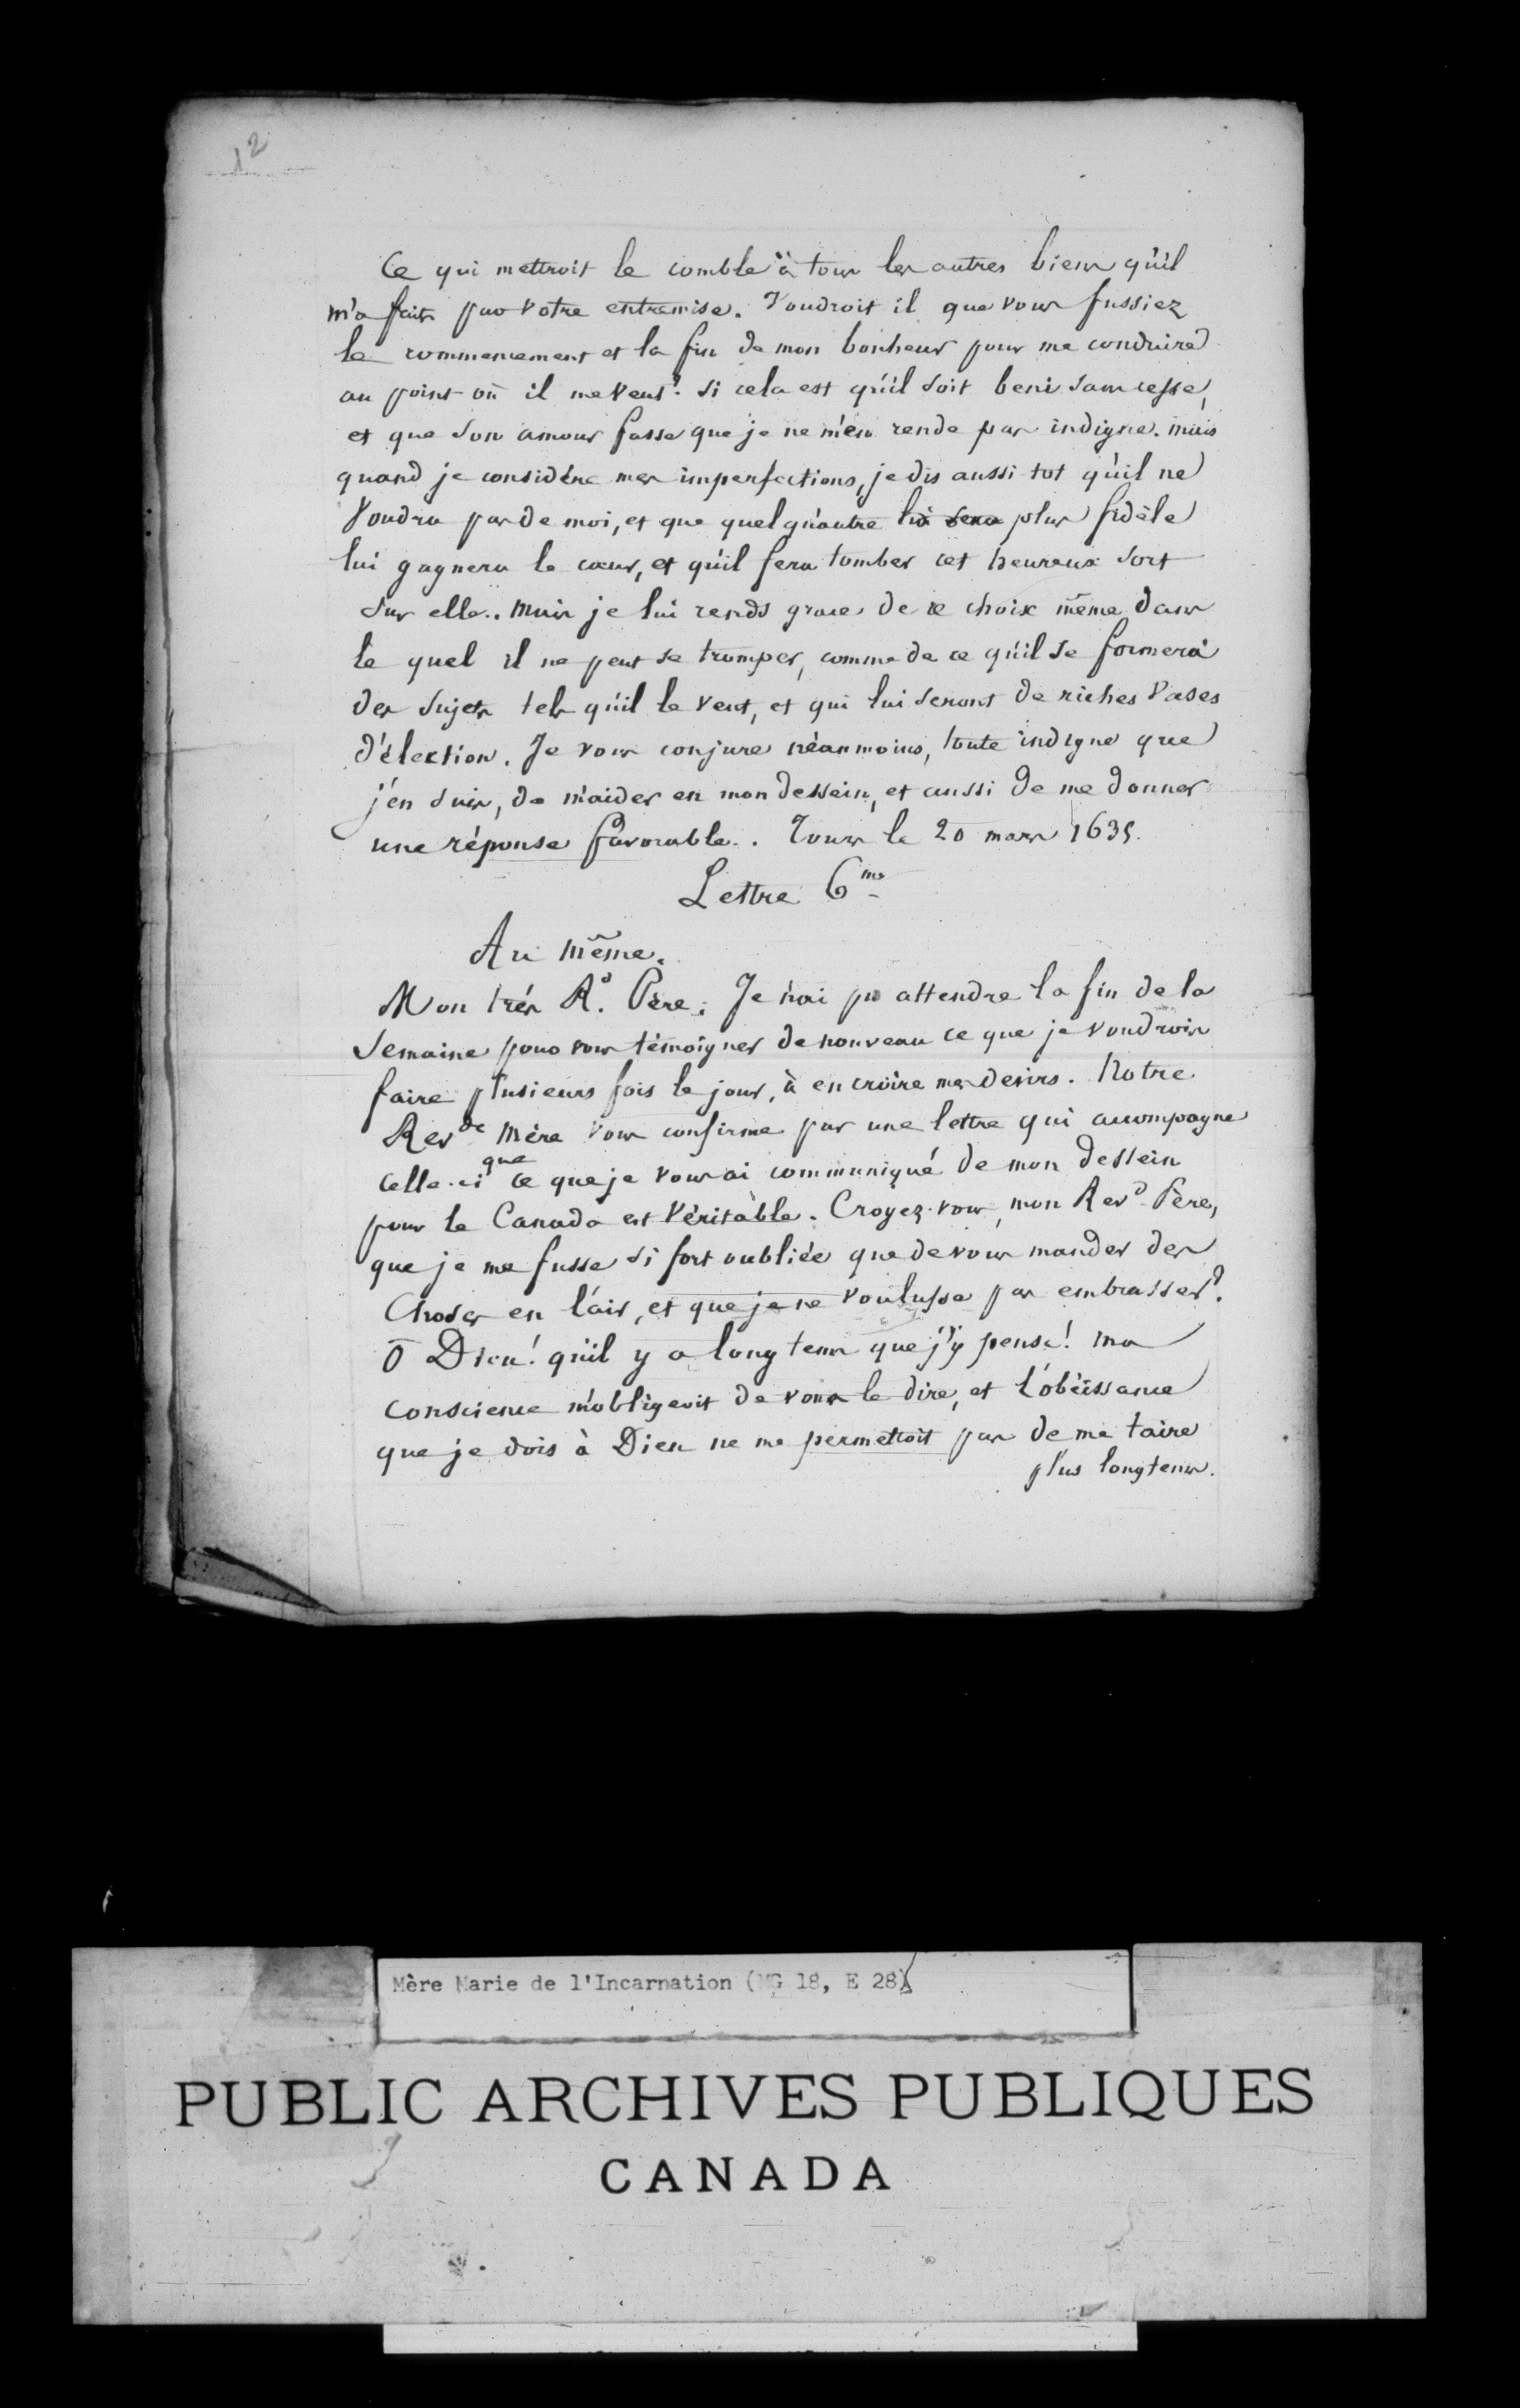 12
Ce qui mettroit le comble à tous les autres biens qu'il
m'a faits par votre entremise. Voudroit il que vous fussiez
le commencement et la fin de mon bonheur pour me conduire
au point où il me veut? Si cela est qu'il soit beni sans cesse,
et que son amour fasse que je ne m'en rende pas indigne. mais
quand je considére mes imperfections, je dis aussi tot qu'il ne
voudra pas de moi, et que quelqu'autre lui sera plus fidèle
lui gagnera le cœur, et qu'il fera tomber cet heureux sort
sur elle.. Mais je lui rends grace de ce choix même dans
le quel il ne peut se tromper, comme de ce qu'il se formera
des sujets tels qu'il le veut, et qui lui seront de riches vases
d'élection. Je vous conjure néanmoins, toute indigne que
j'en suis, de m'aider en mon dessein, et aussi de me donner
une réponse favorable.. Tours le 20 mars 1635.
Lettre 6me
Au même.
Mon très Rd. Père. Je n'ai pu attendre la fin de la
semaine pour vous témoigner de nouveau ce que je voudrois
faire plusieurs fois le jour, à en croire mes desirs. Notre
Revde Mère vous confirme par une lettre qui accompagne
celle-ci que ce que je vous ai communiqué de mon dessein
pour le Canada est véritable. Croyez-vous, mon Revd Père,
que je me fusse si fort oubliée que de vous mander des
choses en l'air, et que je ne voulusse pas embrasser?
O Dieu! qu'il y a long tems que j'y pense! ma
conscience m'obligeoit de vous le dire, et l'obéissance
que je dois à Dieu ne me permettoit pas de me taire
plus longtems.
Mère Marie de l'Incarnation (MG 18, E 28)
PUBLIC ARCHIVES PUBLIQUES
CANADA